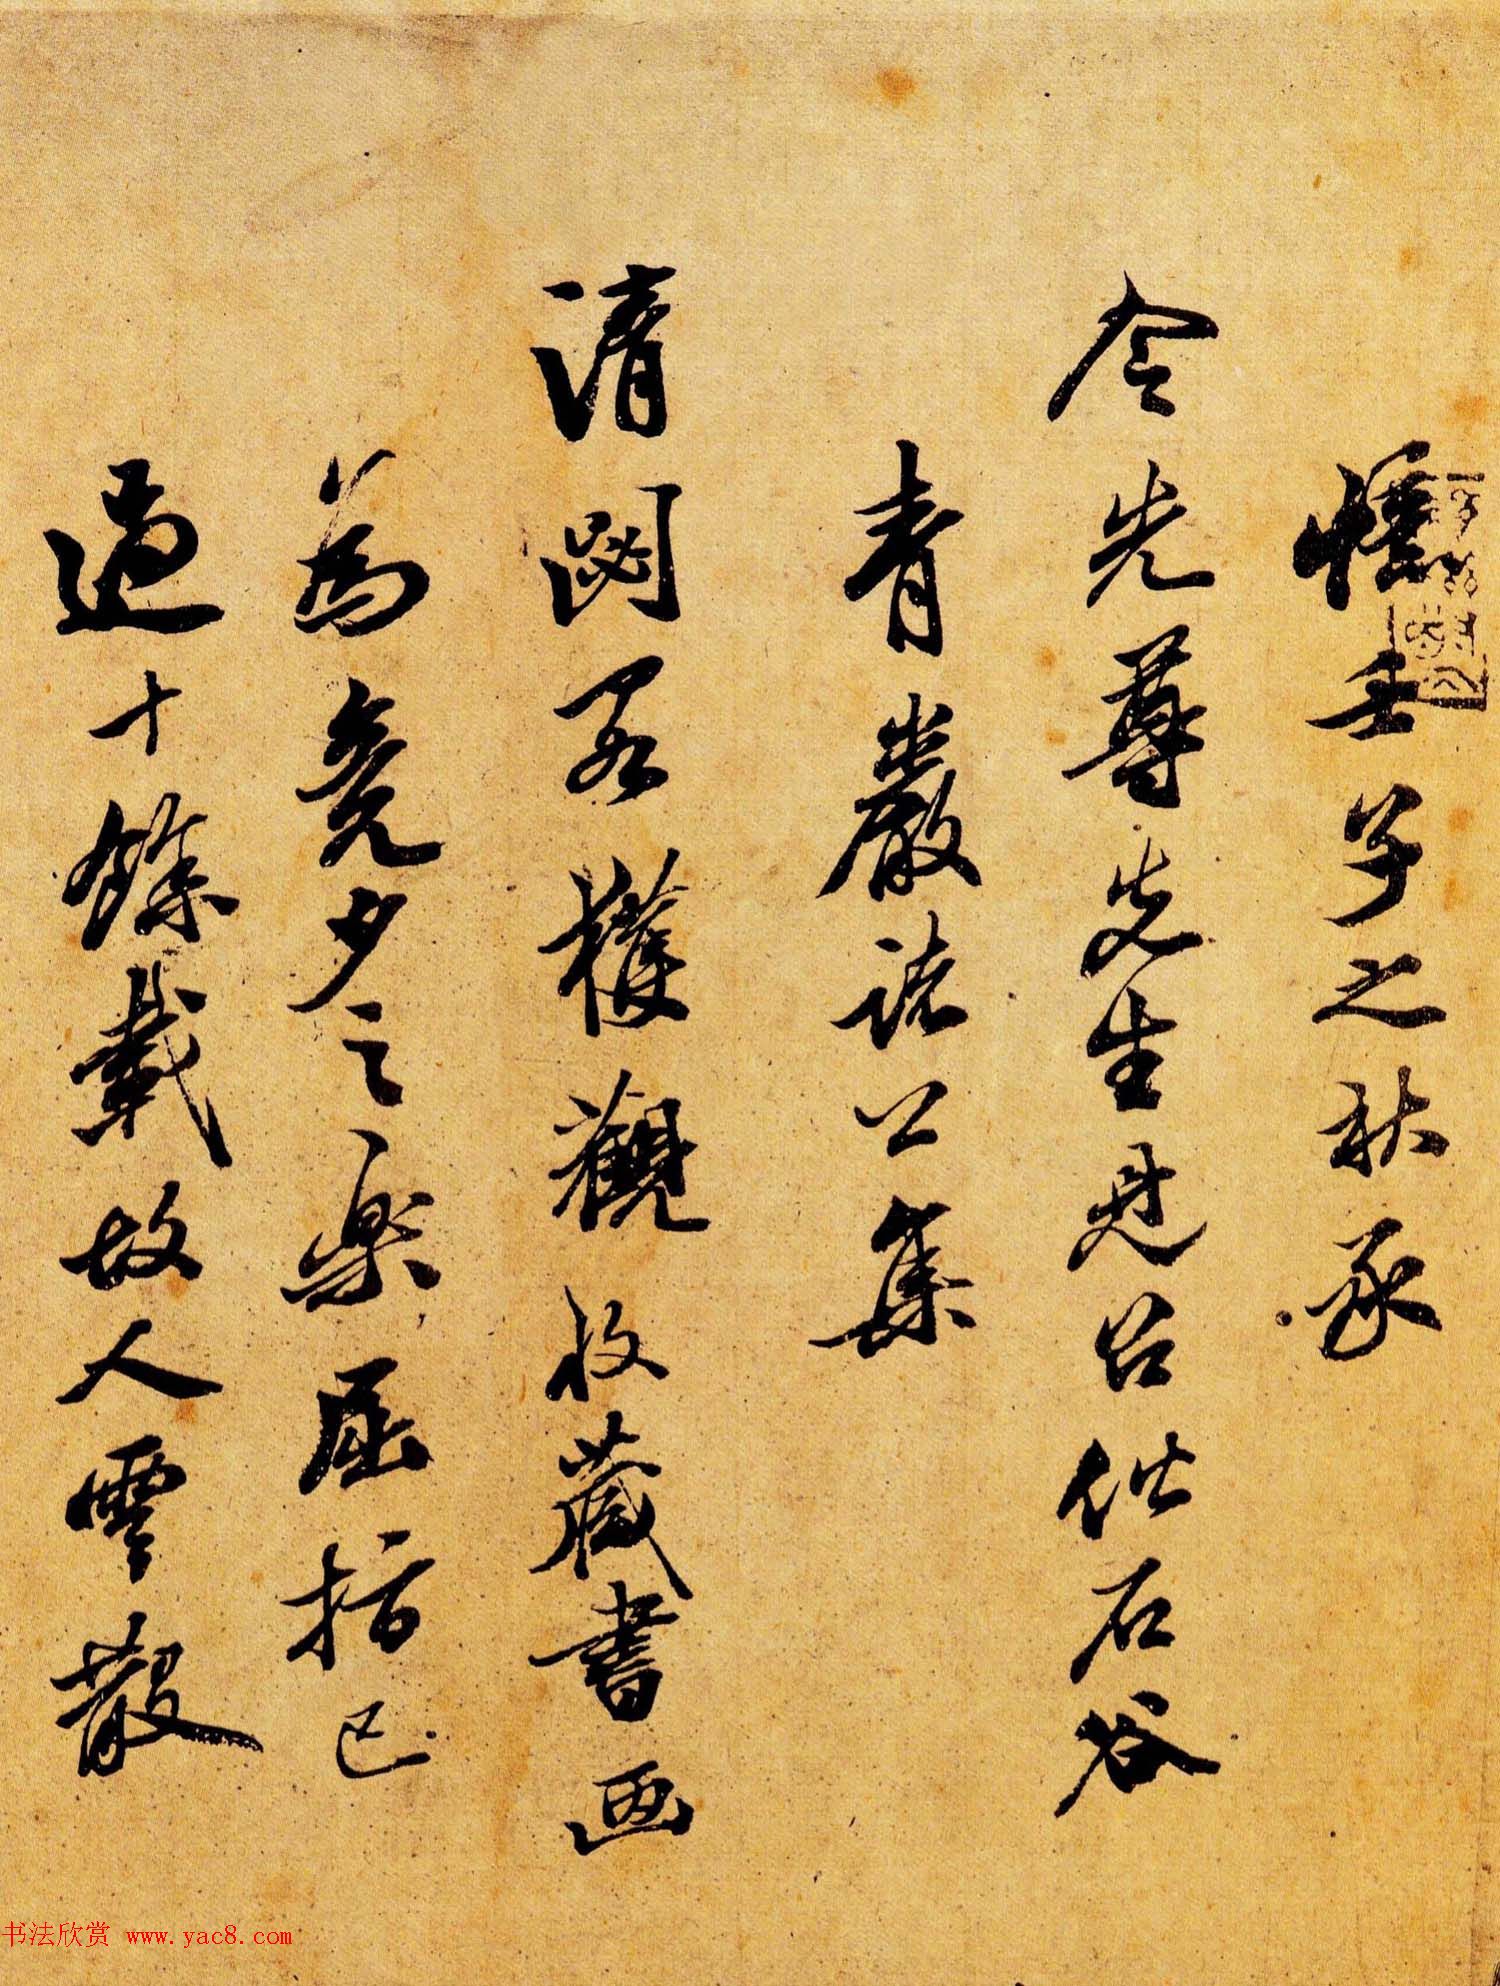 憶壬子之秋承
令先尊先生見召偕石谷
青巖諸公集
清閟獲觀收藏書画
為竟夕之樂屈指已
過十餘載故人雲散
书法欣赏 www.yac8.com